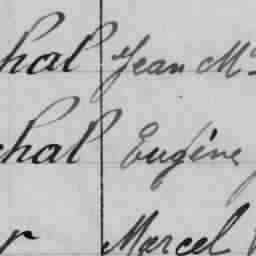 hal Jean M
chal Eugène
r Marcel